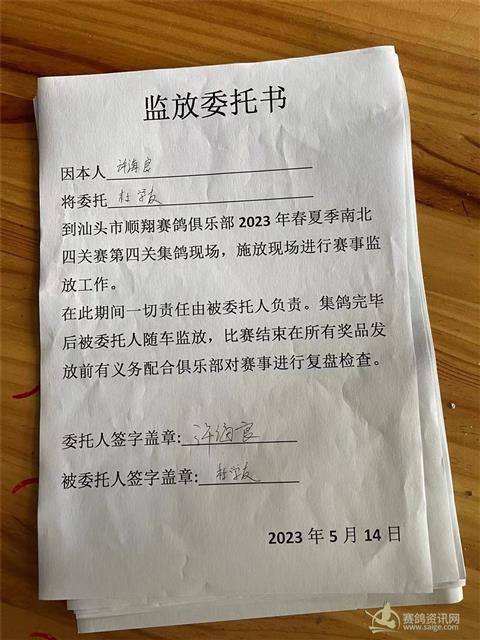 监放委托书
因本人 许海良
将委托 杜学友
到汕头市顺翔赛鸽俱乐部 2023 年春夏季南北
四关赛第四关集鸽现场，施放现场进行赛事监
放工作。
在此期间一切责任由被委托人负责。集鸽完毕
后被委托人随车监放，比赛结束在所有奖品发
放前有义务配合俱乐部对赛事进行复盘检查。
委托人签字盖章: 许海良
被委托人签字盖章: 杜学友
2023 年 5 月 14 日
赛鸽资讯网
www.saige.com